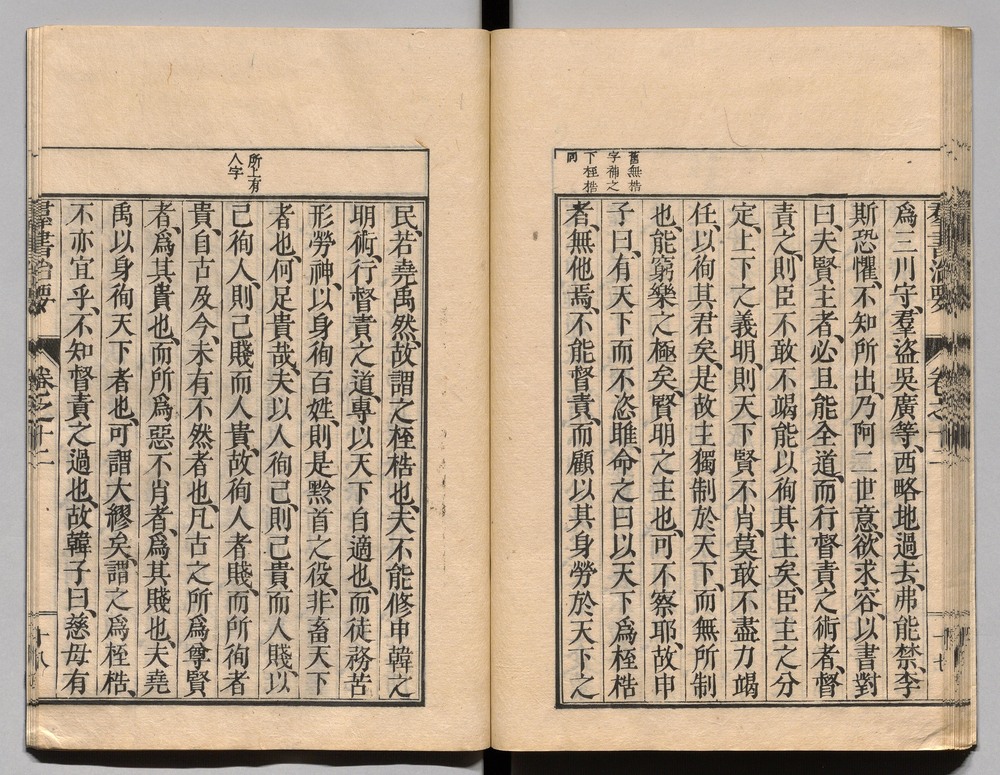 舊無梏
字補之
下桎梏
同
羣書治要
卷之十二
十七
爲三川守、羣盜吳廣等、西略地過去、弗能禁、李
斯恐懼、不知所出、乃阿二世意、欲求容、以書對
曰、夫賢主者、必且能全道、而行督責之術者、督
責之、則臣不敢不竭能以徇其主矣、臣主之分
定、上下之義明、則天下賢不肖、莫敢不盡力竭
任、以徇其君矣、是故主獨制於天下、而無所制
也、能窮樂之極矣、賢明之主也、可不察耶、故申
子曰、有天下而不恣睢、命之曰以天下爲桎梏
者、無他焉、不能督責、而顧以其身勞於天下之
所上有
人字
民、若堯禹然、故謂之桎梏也、夫不能修申韓之
明術、行督責之道、專以天下自適也、而徒務苦
形勞神、以身徇百姓、則是黔首之役、非畜天下
者也、何足貴哉、夫以人徇己、則己貴而人賤、以
己徇人、則己賤而人貴、故徇人者賤、而所徇者
貴、自古及今、未有不然者也、凡古之所爲尊賢
者、爲其貴也、而所爲惡不肖者、爲其賤也、夫堯
禹以身徇天下者也、可謂大繆矣、謂之爲桎梏、
不亦宜乎、不知督責之過也、故韓子曰、慈母有
羣書治要
卷之十二
十八